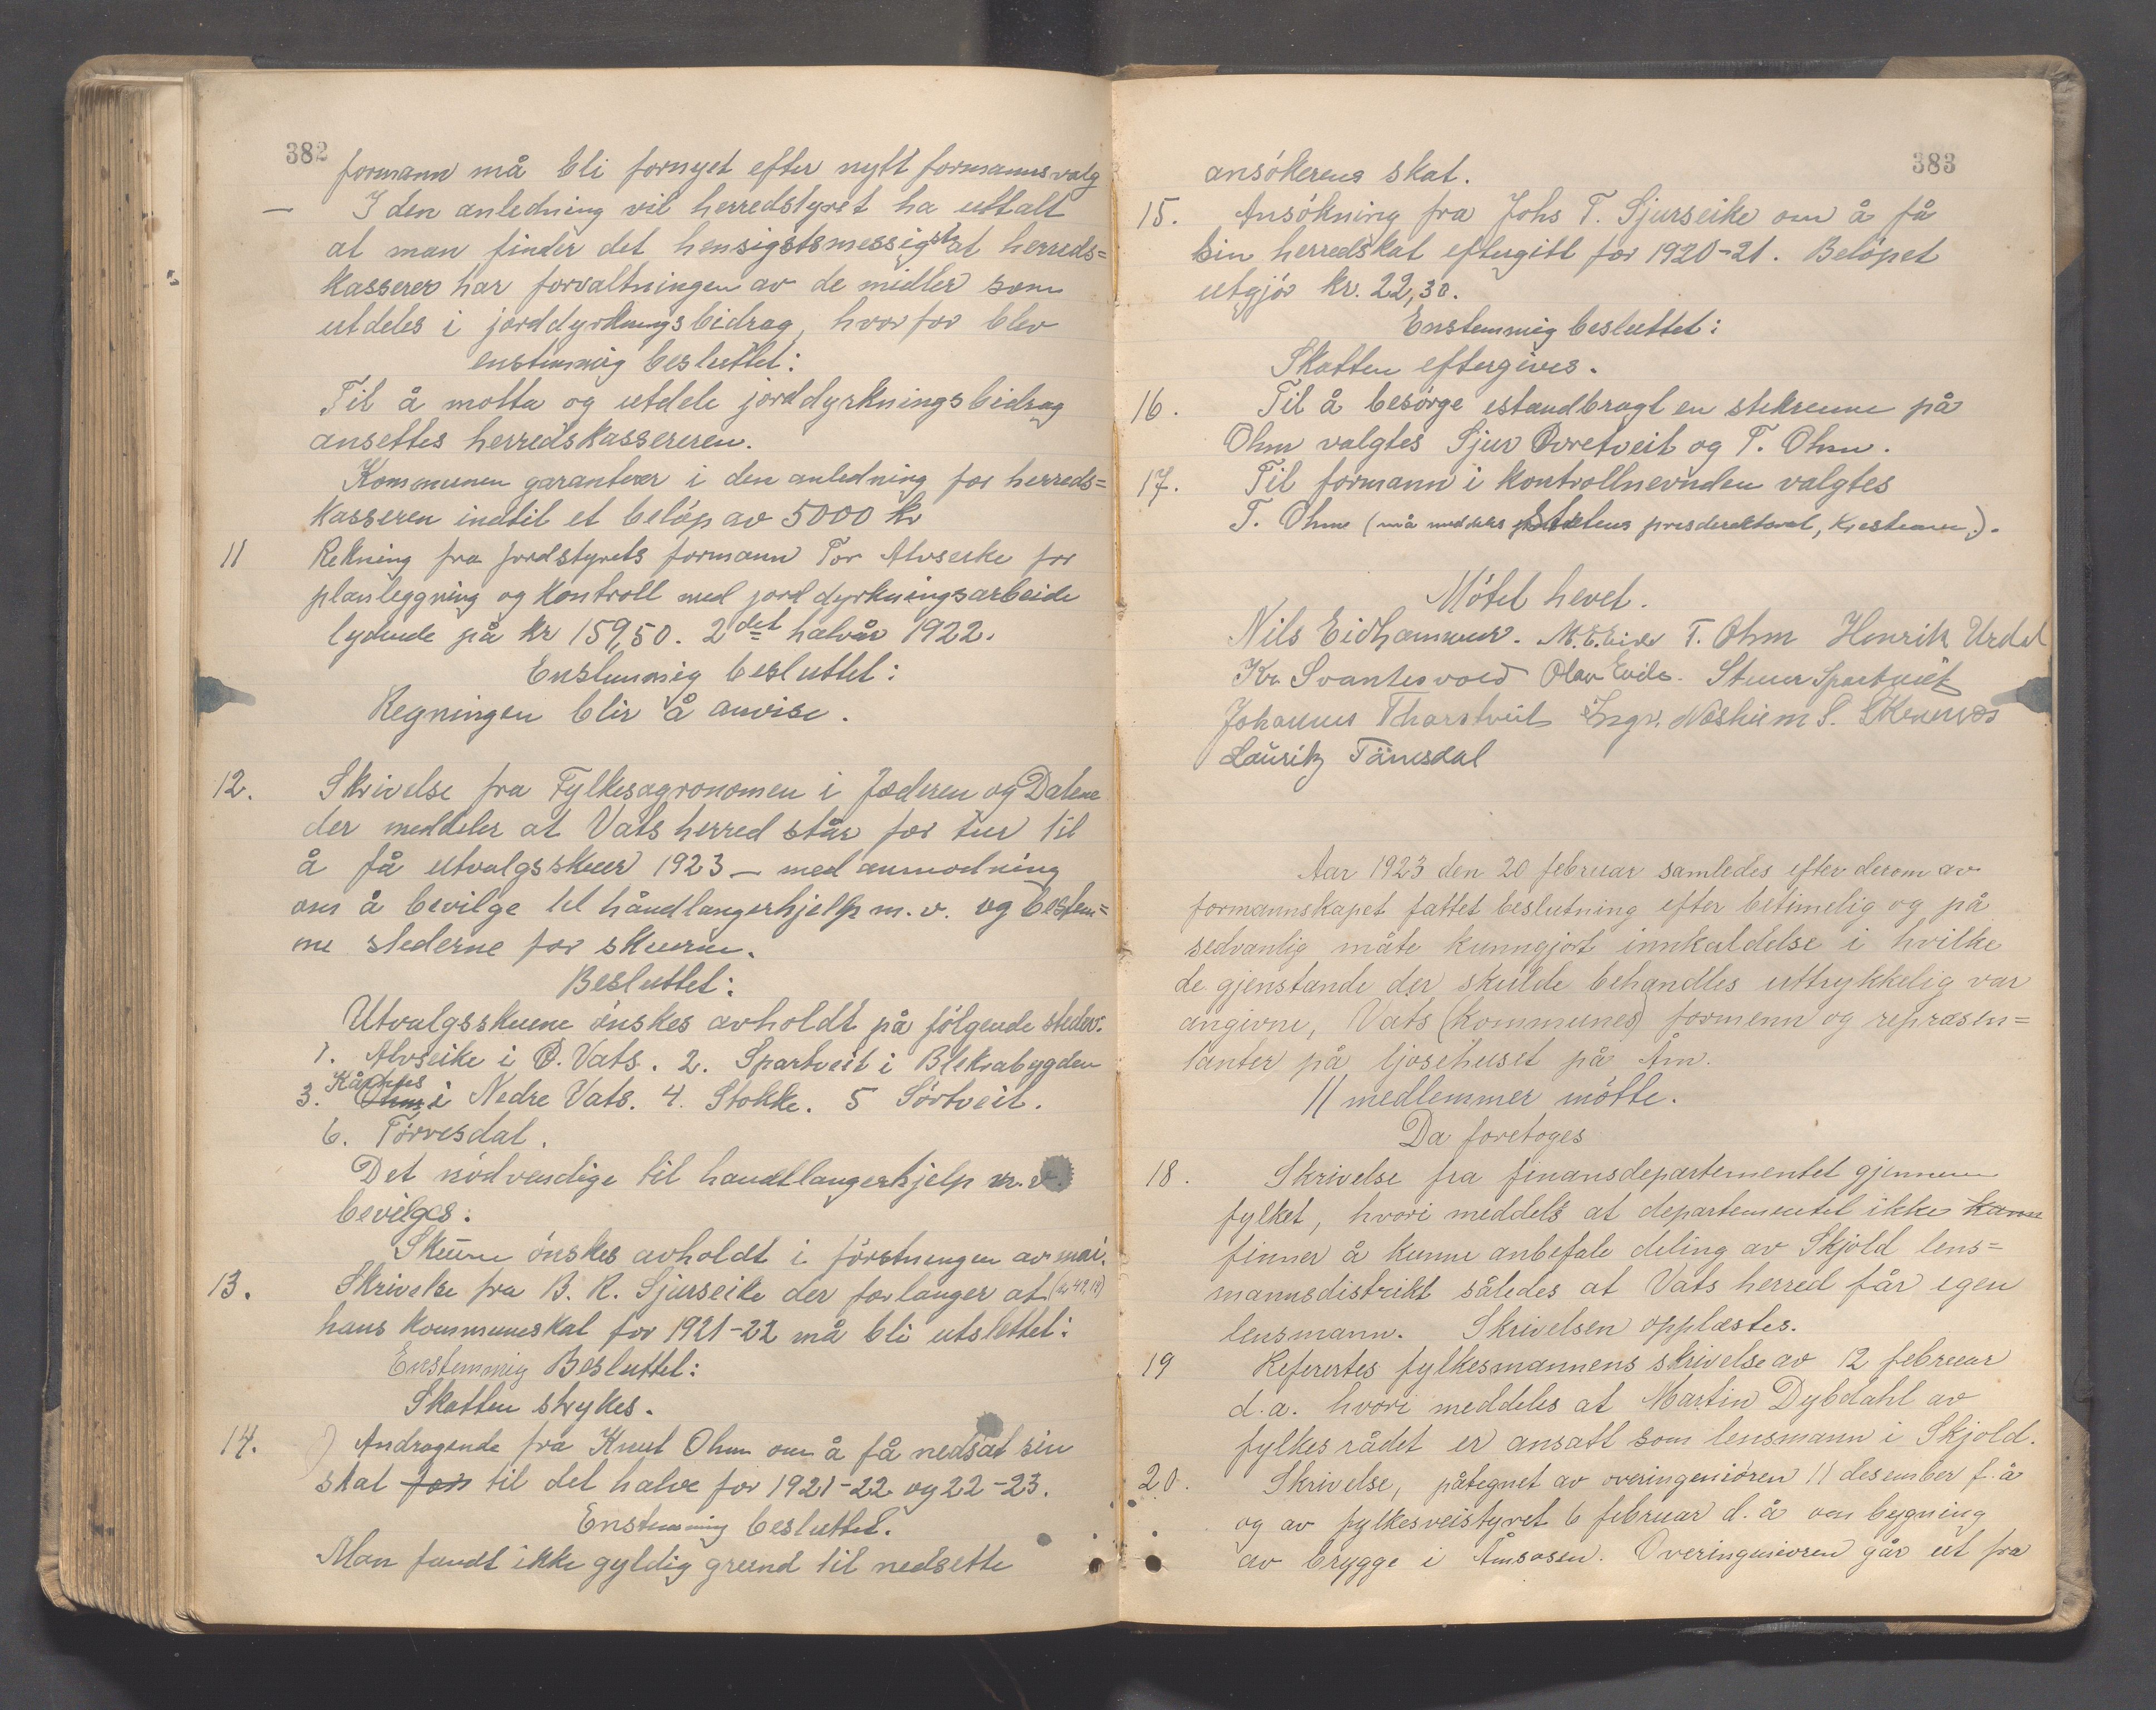 382
formann må bli fornyet efter nytt formannsvalg
— I den anledning vil herredstyret ha uttalt
at man finder det hensigtsmessigst at herreds=
kasserer har forvaltningen av de midler som
utdeles i jorddyrkningsbidrag, hvorfor blev
enstemmig besluttet:
Til å motta og utdele jorddyrkningsbidrag
ansettes herredskassereren.
Kommunen garanterer i den anledning for herreds=
kasseren indtil et beløp av 5000 kr
11 Rekning fra jordstyrets formann Tor Alvseike for
planleggning og kontroll med jorddyrkningsarbeide
lydende på kr 159,50. 2det halvår 1922.
Enstemmig besluttet:
Regningen blir å anvise.
12. Skrivelse fra Fylkesagronomen i Jæderen og Dalene
der meddeler at Vats herred står for tur til
å få utvalgsskuer 1923 — med anmodning
om å bevilge til håndlangerhjelp m.v. og bestem=
me stederne for skuerne.
Besluttet:
Utvalgsskuene ønskes avholdt på følgende steder:
1. Alvseike i Ø. Vats. 2. Spartveit i Blikrabygden
3. Kårhus i Nedre Vats. 4. Stokke. 5 Sörtveit.
6. Törvesdal.
Det nödvendige til handtlangerhjelp m.v.
bevilges.
Skuerne ønskes avholdt i förstningen av mai.
13. Skrivelse fra B. R. Sjurseike der forlanger at
hans kommuneskat for 1921-22 må bli utslettet:
Enstemmig Besluttet:
Skatten strykes.
14. Andragende fra Knut Ohm om å få nedsat sin
skat for til det halve for 1921-22 og 22-23.
Enstemmig besluttet.
Man fandt ikke gyldig grund til nedsette
383
ansökerens skat.
15. Ansökning fra Johs T. Sjurseike om å få
sin herredskat eftergitt for 1920-21. Belöpet
utgjör kr. 22,30.
Enstemmig besluttet:
Skatten eftergives.
16. Til å besörge istandbragt en stikrenne på
Ohm valgtes Sjur Øvretveit og T. Ohm.
17. Til formann i kontrollnevnden valgtes
T. Ohm (må meddeles Statens prisdirektorat, Kristiania).
Mötet hevet.
Nils Eidhammer. M. E. Eide T. Ohm Henrik Urdal
Kr. Svantesvold Olav Eide. Steinar Spartveit
Johannes Thorstveit Ingv. Nesheim S. Skeiseid
Lauritz Törresdal
Aar 1923 den 20 februar samledes efter derom av
formannskapet fattet beslutning efter betimelig og på
sedvanlig måte kunngjort innkaldelse i hvilke
de gjenstande der skulde behandles uttrykkelig var
angivne, Vats (kommunes) formenn og represen=
tanter på ljosehuset på Åm.
11 medlemmer mötte.
Da foretoges
18. Skrivelse fra finansdepartementet gjennem
fylket, hvori meddels at departementet ikke kann
finner å kunne anbefale deling av Skjold lens=
mannsdistrikt således at Vats herred får egen
lensmann. Skrivelsen opplæstes.
19 Refereres fylkesmannens skrivelse av 12 februar
d.a. hvori meddeles at Martin Dybdahl av
fylkesrådet er ansatt som lensmann i Skjold.
20. Skrivelse, påtegnet av overingeniören 11 desember f.å
og av fylkesveistyret 6 februar d.å om bygning
av brygge i Åmsosen. Overingeniören går ut fra